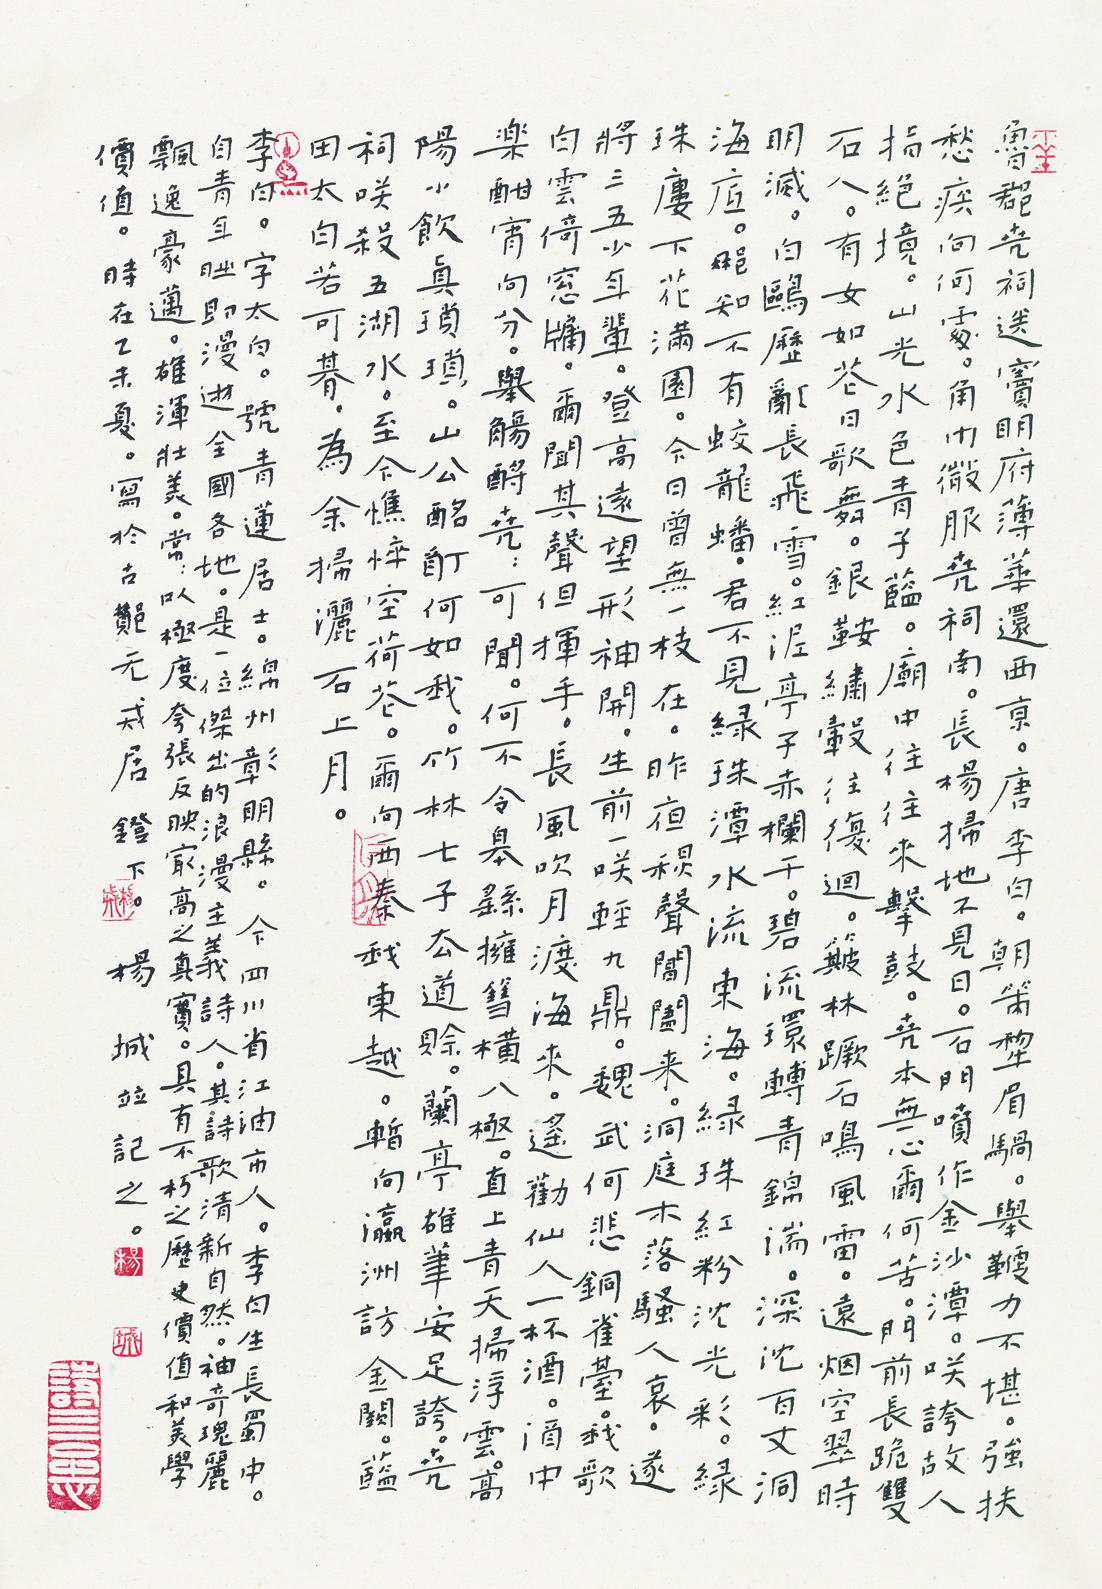 魯郡尭祠送竇明府薄華還西京。唐李白。朝策犂眉騧。舉鞭力不堪。強扶
愁疾向何處。角巾微服尭祠南。長楊掃地不見日。石門噴作金沙潭。咲誇故人
指絕境。山光水色青于藍。廟中往往來擊鼓。尭本無心爾何苦。門前長跪雙
石人。有女如花日歌舞。銀鞍繡轂往復迴。簸林蹶石鳴風雷。遠烟空翠時
明滅。白鷗歷亂長飛雪。紅泥亭子赤欄干。碧流環轉青錦湍。深沈百丈洞
海底。那知不有蛟龍蟠。君不見綠珠潭水流東海。綠珠紅粉沈光彩。綠
珠樓下花滿園。今日曾無一枝在。昨夜秋聲閶闔来。洞庭木落騷人哀。遂
將三五少年輩。登高遠望形神開。生前一咲輕九鼎。魏武何悲銅雀臺。我歌
白雲倚窓牖。爾聞其聲但揮手。長風吹月渡海來。遙勸仙人一杯酒。酒中
楽酣宵向分。舉觴酹尭：可聞。何不令皋繇擁篲橫八極。直上青天掃浮雲。高
陽小飲真瑣瑣。山公酩酊何如我。竹林七子去道賒。蘭亭雄筆安足誇。尭
祠咲殺五湖水。至今憔悴空荷花。爾向西秦我東越。暫向瀛洲訪金闕。藍
田太白若可朞。為余掃灑石上月。
李白。字太白。號青蓮居士。綿州彰明縣。今四川省江油市人。李白生長蜀中。
自青年時即漫遊全國各地。是一位傑出的浪漫主義詩人。其詩歌清新自然。神奇瑰麗
飄逸豪邁。雄渾壯美。常：以極度夸張反映冣高之真實。具有不朽之歷史價值和美學
價值。時在乙未夏。寫於古酇无戒居鐙下。楊城並記之。
楊
城